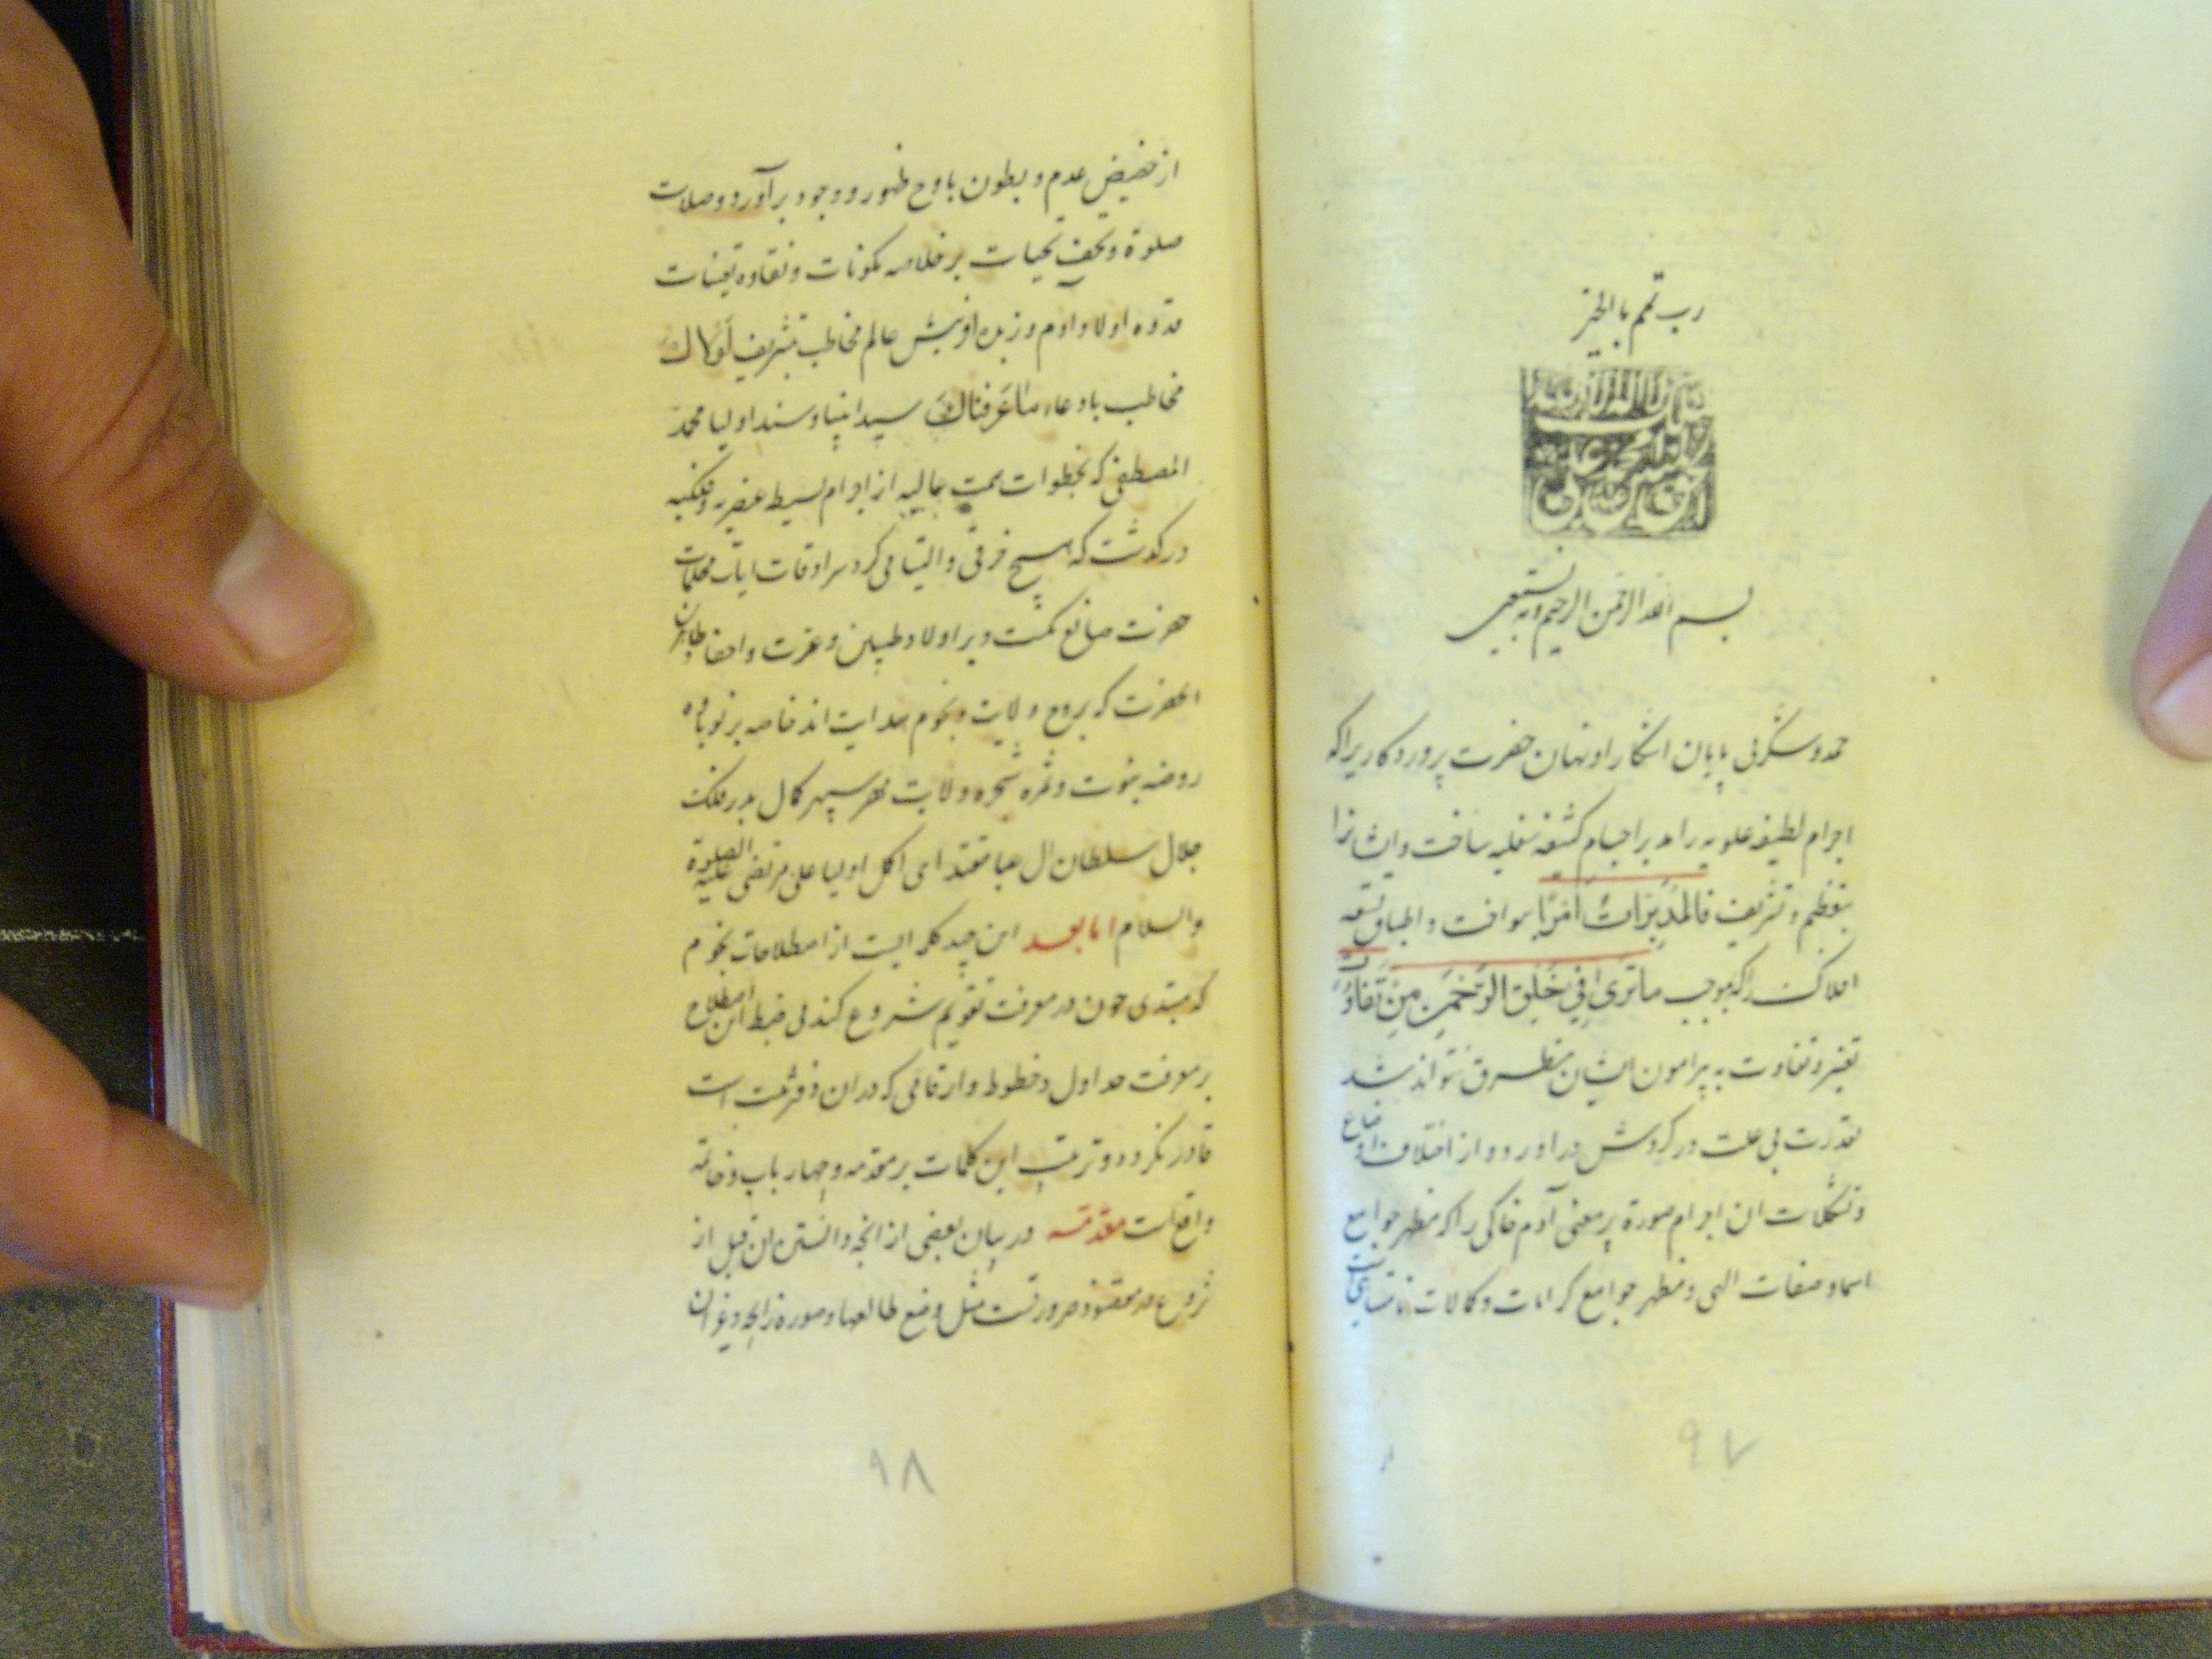 رب تمم بالخیر
بسم الله الرحمن الرحیم وبه نستعین
حمد و شکر بی پایان اشکارا و نهان حضرت پروردکاریرا که
اجرام لطیفه علویه را مدبر اجسام کثیفه سفلیه ساخت و ایشانرا
بتعظیم و تشریف فَالمُدَبِّرَاتِ اَمرًا بنواخت و اطباق تسعه
افلاک را که بموجب مَا تَرَی فِی خَلقِ الرَّحمنِ مِن تَفَاوُتٍ
تغیر و تفاوت به پیرامون ایشان متطرق نتواند شد
بقدرت بی علت در کردش در اورد و از اختلاف اوضاع
و تشکلات ان اجرام صورة پر معنی آدم خاکی را که مظهر جوامع
اسما و صفات الهی و مظهر جوامع کرامات و کمالات نامتناهی است
۹۷
از حضیض عدم و بطون باوج ظهور و وجود برآورد و صلات
صلوة و تحف تحیات بر خلاصه مکونات و نقاوه تعینات
قدوه اولاد آدم و زبده آفرینش عالم مخاطب بتشریف لَولَاکَ
مخاطب بادعاء مَا عَرَفنَاکَ سید انبیا و سند اولیا محمد
المصطفی که بخطوات همت عالیه از اجرام بسیط عنصریه و فلکیه
درکذشت که هیچ خرقی و التیامی کرد سرادقات ایات محکمات
حضرت صانع نکشت و بر اولاد طیبین و عترت و احفاد طاهرین
انحضرت که بروج ولایت و نجوم هدایت اند خاصه بر نوباوه
روضه نبوت و ثمره شجره ولایت مهر سپهر کمال بدر فلک
جلال سلطان ال عبا مقتدای اکمل اولیا علی مرتضی علیه الصلوة
والسلام اما بعد این چند کلمه ایست از اصطلاحات نجوم
که مبتدی چون در معرفت تقویم شروع کند بی ضبط این اصطلاح
بر معرفت جداول و خطوط و ارقامی که در ان دفتر ثبت است
قادر نکردد و ترتیب این کلمات بر مقدمه و چهار باب و خاتمه
واقعست مقدمه در بیان بعضی از انچه دانستن ان قبل از
شروع در مقصود ضرورتست مثل وضع طالعها و صورة زایجه و غیر ان
۹۸